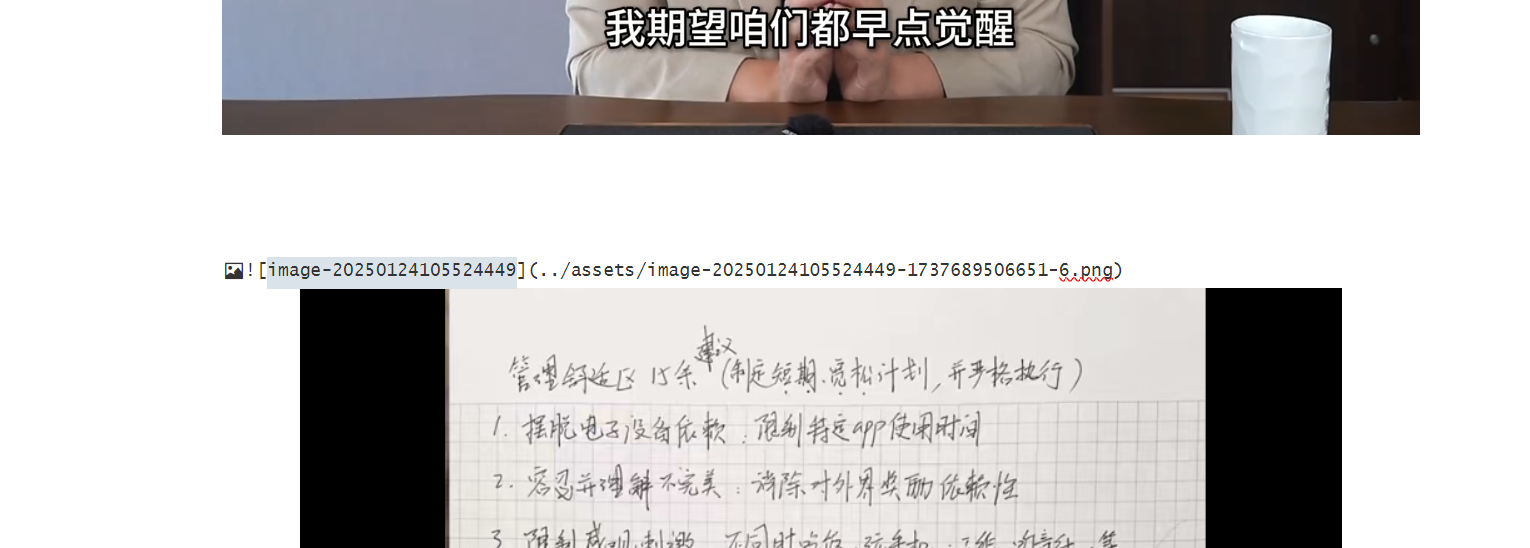 我期望咱们都早点觉醒
![image-20250124105524449](../assets/image-20250124105524449-1737689506651-6.png)
建议
管理舒适区 15条 (制定短期、宽松计划,并严格执行)
1. 摆脱电子设备依赖:限制特定app使用时间
2. 容忍并理解不完美:消除对外界奖励依赖性
3. 限制感观刺激